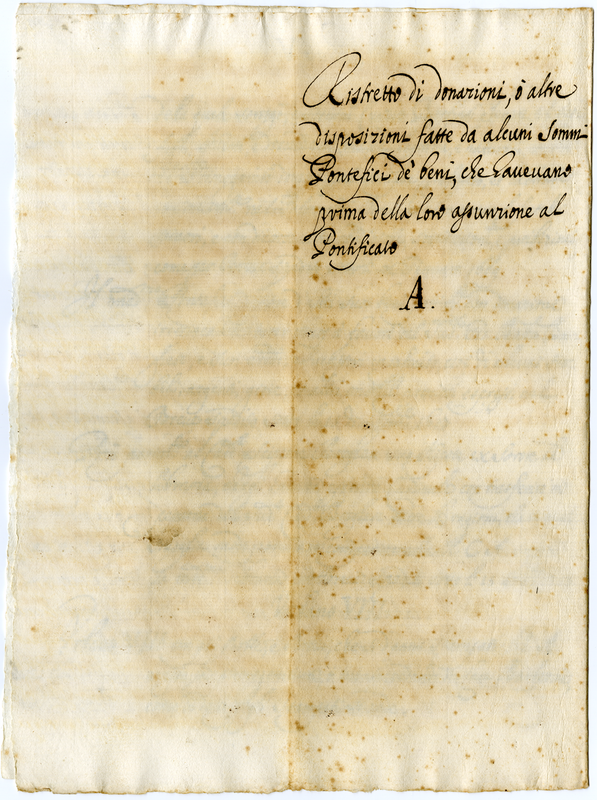 Ristretto di donazioni, ò altre
disposizioni fatte da alcuni Sommi
Pontefici de' beni, che haueuano
prima della loro assunzione al
Pontificato
A.